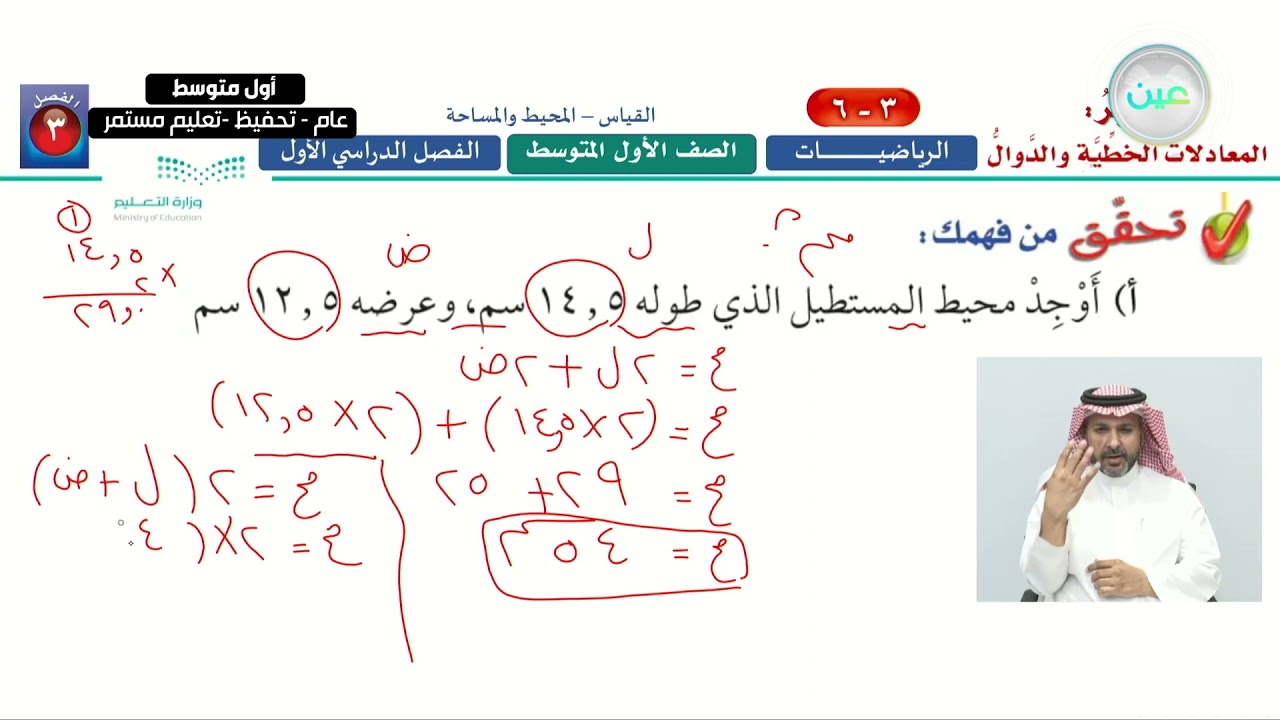 عين
أول متوسط
عام - تحفيظ -تعليم مستمر
الفصل
٣
٣ - ٦
القياس – المحيط والمساحة
المعادلات الخطِّيَّة والدَّوالُّ
الرياضيـــــــات
الصف الأول المتوسط
الفصل الدراسي الأول
وزارة التعـــليم
Ministry of Education
تحقّق من فهمك:
ل
ض
أ) أَوْجِدْ محيط المستطيل الذي طوله ١٤,٥ سم، وعرضه ١٢,٥ سم
١
١٤,٥
٢ ×
٢٩,٠
ع = ٢ل + ٢ض
ع = (٢×١٤,٥) + (٢×١٢,٥)
ع = ٢٩ + ٢٥
ع = ٥٤ سم
ع = ٢(ل + ض)
ع = ٢×( ٤